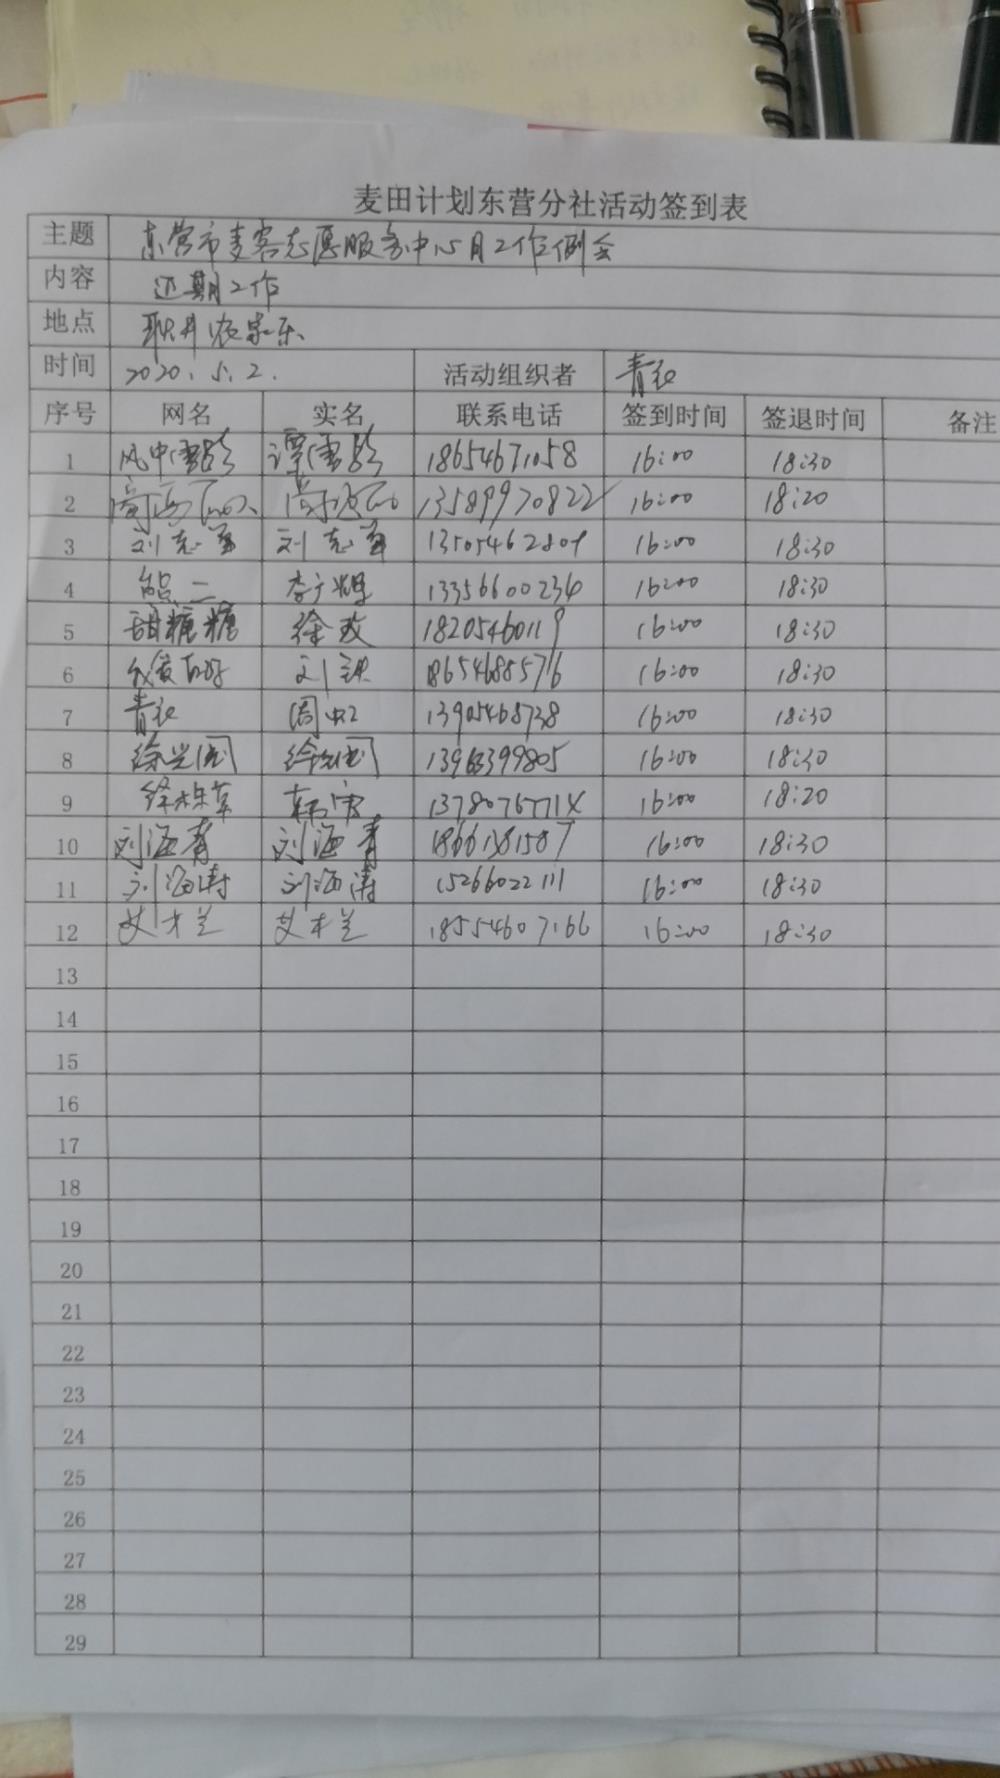 麦田计划东营分社活动签到表
主题 东营市麦客志愿服务中心月工作例会
内容 近期工作
地点 农家乐
时间 2020.5.2. 活动组织者 青衫
序号 网名 实名 联系电话 签到时间 签退时间 备注
1 风中雪 谭雪 18654671058 16:00 18:30
2 13589970822 16:00 18:20
3 刘志军 刘志军 16:00 18:30
4 熊二 李广辉 13356600234 16:00 18:30
5 甜糖糖 徐政 18205460119 16:00 18:30
6 刘 18654685576 16:00 18:30
7 周虹 13905468738 16:00 18:30
8 徐兴国 徐兴国 13963399805 16:00 18:30
9 韩 16:00 18:20
10 刘海青 刘海青 18661381587 16:00 18:30
11 刘海涛 刘海涛 15266022111 16:00 18:30
12 艾才兰 艾才兰 18554607166 16:00 18:30
13
14
15
16
17
18
19
20
21
22
23
24
25
26
27
28
29